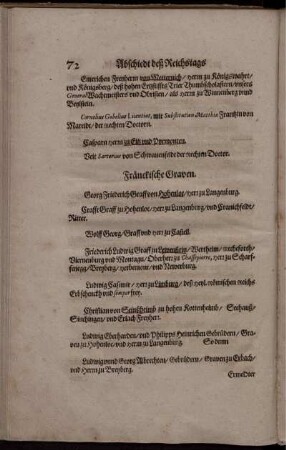 72 Abschiedt deß Reichstags
Emerichen Freyherrn von Metternich/Herrn zu Königswahrt/
und Königsberg/ deß hohen Ertzstiffts Trier Thumbscholastern/unsers
General Wachtmeisters und Obristen/ als Herrn zu Winnenberg unnd
Beylstein.
Cornelius Gobelius Licentiat, mit Substitution Matthiæ Frantzen von
der rechten Doctorn.
Caspern Herrn zu Eltz und
Veit Sartorius von Schwanenfeldt der rechten Doctor.
Fränckische Graven.
Georg Friederich Graff von Hohenloe/ Herr zu Langenburg.
Crafft Graff zu Hohenloe/ Herr zu Langenburg/ und Cranichfeldt/
Ritter.
Wolff Georg/ Graff und Herr zu Castell.
Friederich Ludwig Graff zu Löwenstein/ Wertheim/ Rochefort/
Virnenburg und Montagu/ Oberherr zu Chassepierre, Herr zu Scharf-
feneeg/ Breyberg/ Herbemont/ und Newerburg.
Ludwig Casimir/ Herr zu Limburg/ deß Heyl. Römischen Reichs
Erbschenck und semper frey.
Christian von zu hohen Kottenheimb/ Seehauß/
und Erlach Freyherr.
Ludwig Eberharden/ und Philipps Heinrichen Gebrüdern/ Gra-
ven zu Hohenloe/ und Herrn zu Langenburg. So denn
Ludwig unnd Georg Albrechten/ Gebrüdern/ Graven zu Erbach/
und Herrn zu Breyberg.
Erwedter